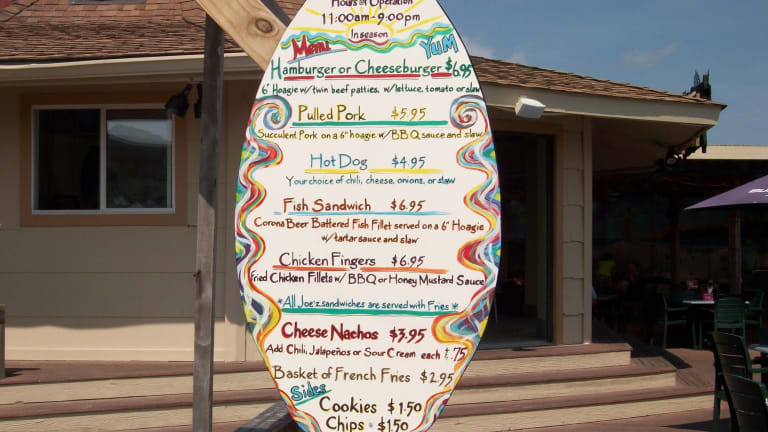 Hours of Operation
11:00am-9:00pm
In season
Menu YUM
Hamburger or Cheeseburger $6.95
6" Hoagie w/twin beef patties, w/lettuce, tomato or slaw
Pulled Pork $5.95
Succulent Pork on a 6" hoagie w/BBQ sauce and slaw
Hot Dog $4.95
Your choice of chili, cheese, onions, or slaw
Fish Sandwich $6.95
Corona Beer Battered Fish Fillet served on a 6" Hoagie
w/tartar sauce and slaw
Chicken Fingers $6.95
Fried Chicken Fillets w/ BBQ or Honey Mustard Sauce
*All Joe'z sandwiches are served with Fries*
Cheese Nachos $3.95
Add Chili, Jalapeños or Sour Cream each $.75
Basket of French Fries $2.95
Sides
Cookies $1.50
Chips $1.50